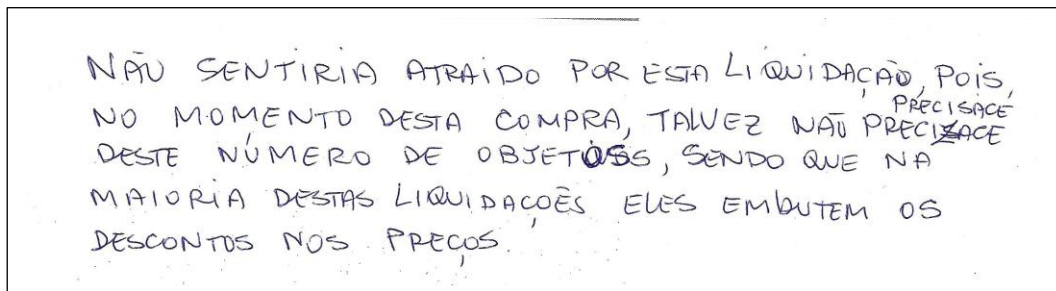 NÃO SENTIRIA ATRAIDO POR ESTA LIQUIDAÇÃO, POIS,
NO MOMENTO DESTA COMPRA, TALVEZ NÃO PRECIZACE PRECISACE
DESTE NÚMERO DE OBJETOS, SENDO QUE NA
MAIORIA DESTAS LIQUIDAÇÕES ELES EMBUTEM OS
DESCONTOS NOS PREÇOS.